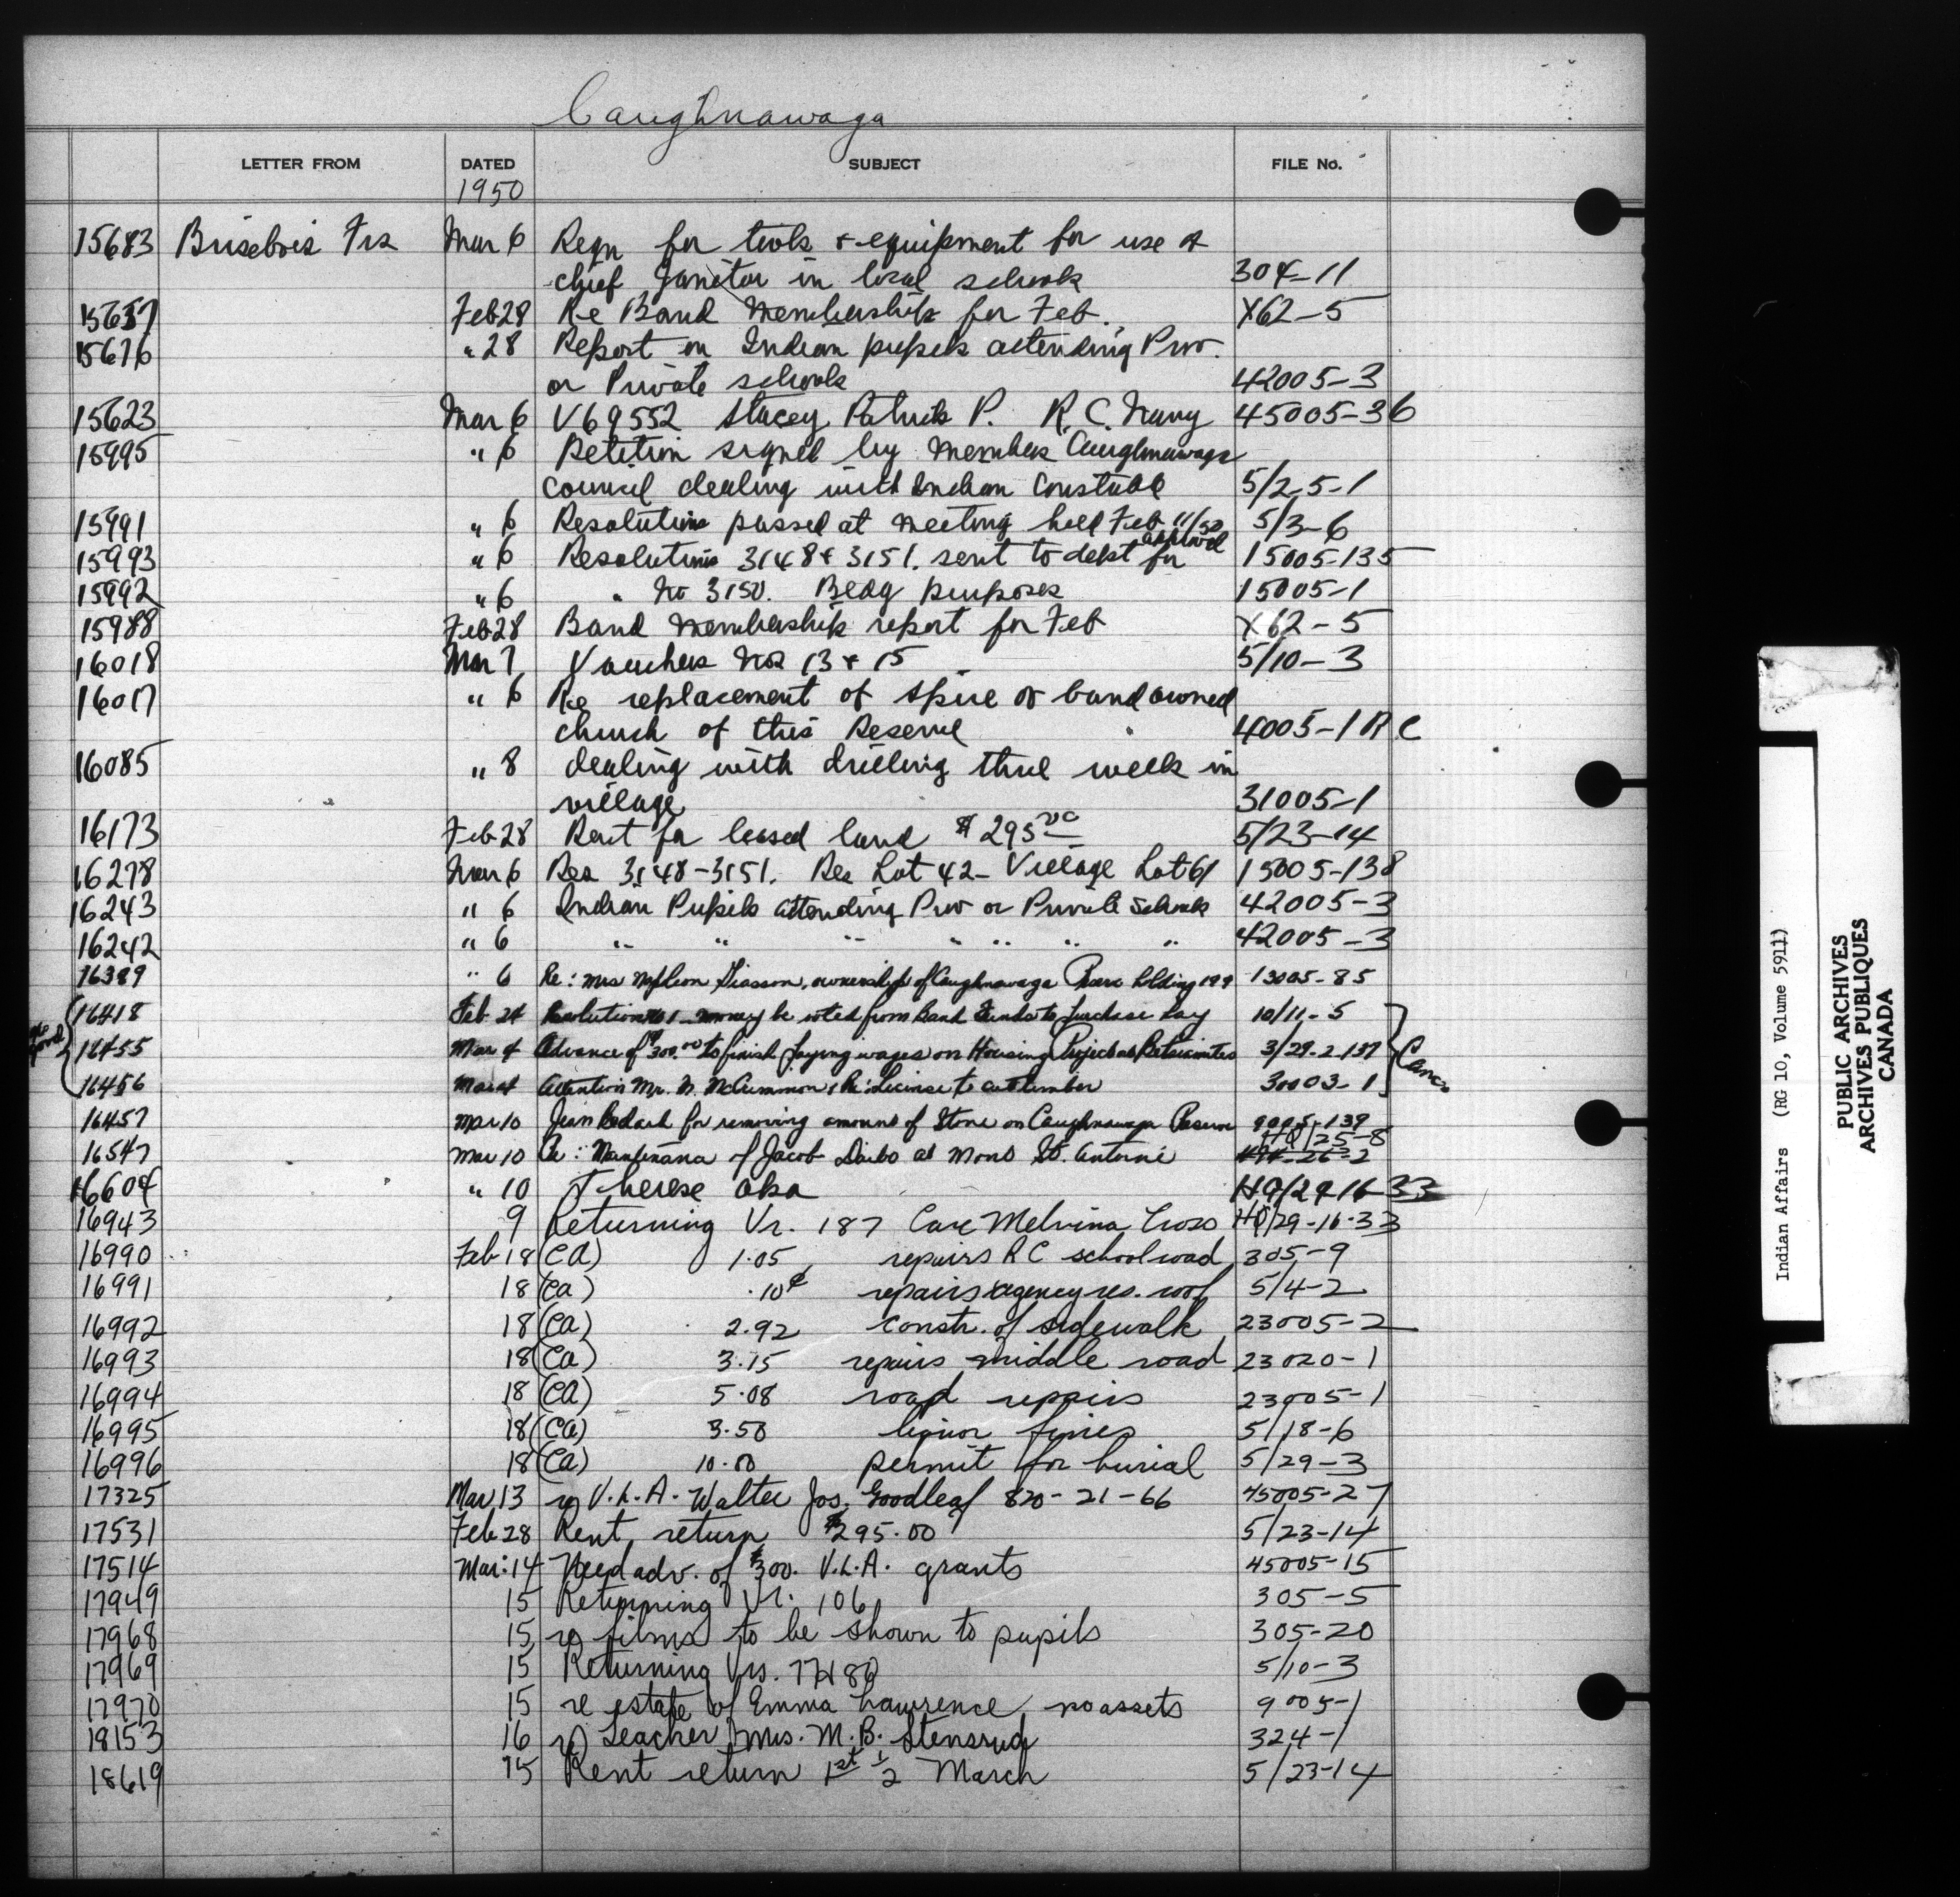 Caughnawaga
LETTER FROM DATED SUBJECT FILE No.
1950
15683 Brisebois Frs Mar 6 Reqn for tools & equipment for use of
chief Janitor in local schools 304-11
15637 Feb 28 Re Band Membership for Feb. X62-5
15676 " 28 Report on Indian pupils attending Prov.
or Private schools 42005-3
15623 Mar 6 V69552 Stacey Patrick P. R.C. Navy 45005-36
15995 " 6 Petition signed by members Caughnawaga
council dealing with Indian Constable 5/2-5-1
15991 " 6 Resolutions passed at meeting held Feb 11/50 5/3-6
15993 " 6 Resolutions 3148 & 3151. sent to dept for approval 15005-135
15992 " 6 " No 3150. Bldg purposes 15005-1
15988 Feb 28 Band Membership report for Feb X62-5
16018 Mar 7 Vouchers Nos 13 & 15 5/10-3
16017 " 6 Re replacement of spire of band owned
church of this Reserve 4005-1 R C
16085 " 8 dealing with drilling three wells in
village 31005-1
16173 Feb 28 Rent for leased land $295.00 5/23-14
16278 Mar 6 Res 3148-3151. Res Lot 42- Village Lot 61 15005-138
16243 " 6 Indian Pupils attending Prov or Private Schools 42005-3
16242 " 6 " " " " " " " 42005-3
16389 " 6 Re: Mrs Napoleon Giasson, ownership of Caughnawaga Reserve holding 199 13005-85
16418 Feb 24 Resolution No 1 - money be voted from Band Funds to purchase hay 10/11-5
16455 Mar 4 Advance of $300.00 to finish paying wages on Housing Project at Betsiamites 3/29-2-137 Canc
16456 Mar 4 Attention Mr. N. McCrimmon: Re: License to cut timber 30003-1
16457 Mar 10 Jean Bedard for removing amount of Stone on Caughnawaga Reserve 9005-139
HQ/25-8
16547 Mar 10 Re: Maintenance of Jacob Daibo at Mont St. Antoine 494-26-2
16604 " 10 Therese Oka HQ/29-16-33
16943 9 Returning Vr. 187 Care Melvina Cross HQ/29-16-33
16990 Feb 18 (CA) 1.05 repairs R C school road 305-9
16991 18 (Ca) .10¢ repairs agency res. roof 5/4-2
16992 18 (Ca) 2.92 constr. of sidewalk 23005-2
16993 18 (Ca) 3.15 repairs middle road 23020-1
16994 18 (CA) 5.08 road repairs 23005-1
16995 18 (CA) 3.50 liquor fines 5/18-6
16996 18 (Ca) 10.00 permit for burial 5/29-3
17325 Mar 13 re V.L.A. Walter Jos. Goodleaf 820-21-66 45005-27
17531 Feb 28 Rent return $295.00 5/23-14
17514 Mar: 14 Need adv. of $300. V.L.A. grants 45005-15
17949 15 Returning Vr. 106 305-5
17968 15 re films to be shown to pupils 305-20
17969 15 Returning Vrs. 77 & 80 5/10-3
17970 15 re estate of Emma Lawrence, no assets 9005-1
18153 16 re Teacher Mrs. M. B. Stensrud 324-1
18619 15 Rent return 1st ½ March 5/23-14
Indian Affairs (RG 10, Volume 5911)
PUBLIC ARCHIVES
ARCHIVES PUBLIQUES
CANADA